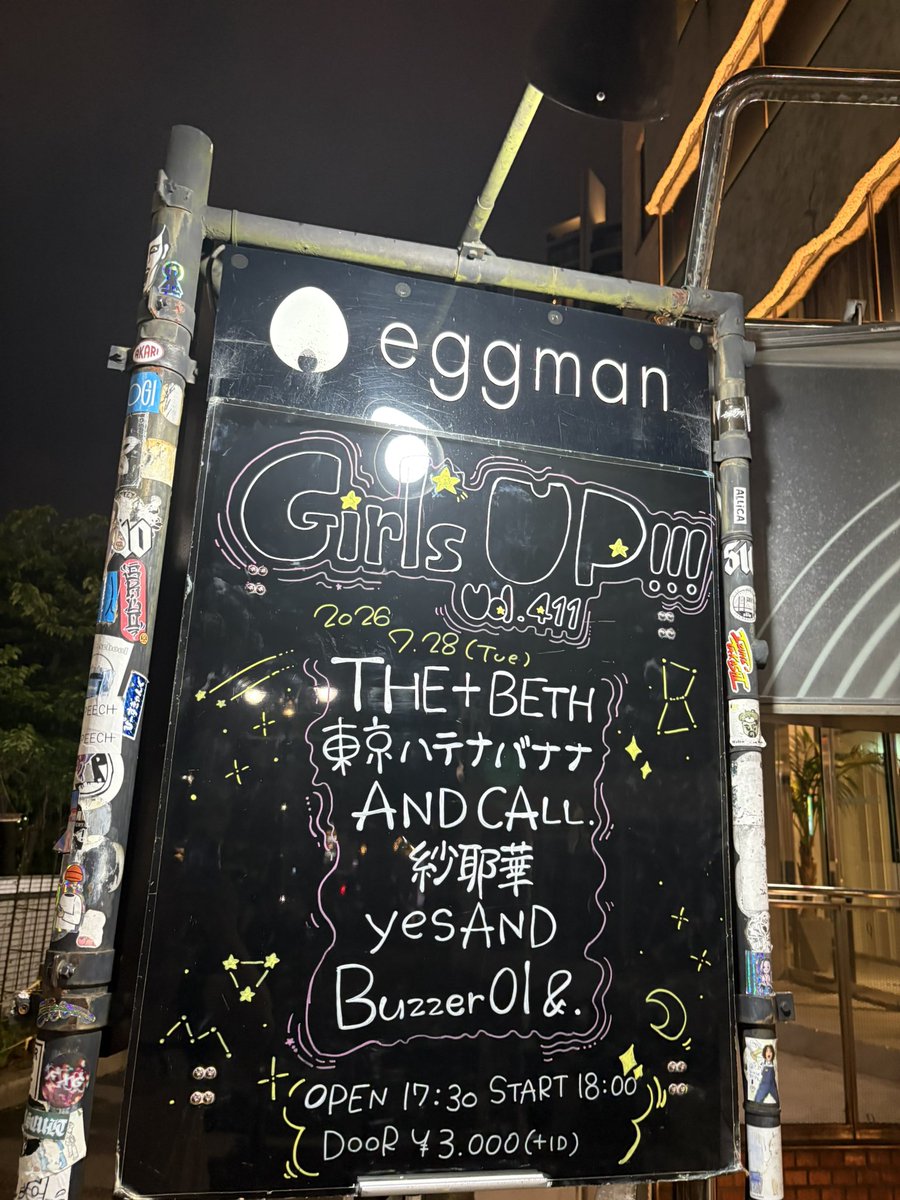 eggman
Girls UP!!!
Vol.411
2026
7.28 (Tue)
THE+BETH
東京ハテナバナナ
AND CALL.
紗耶華
yesAND
Buzzer01&.
OPEN 17:30 START 18:00
DOOR ¥3.000(+1D)
AKARI
OGI
PEECH
PEECH
ALLiCA